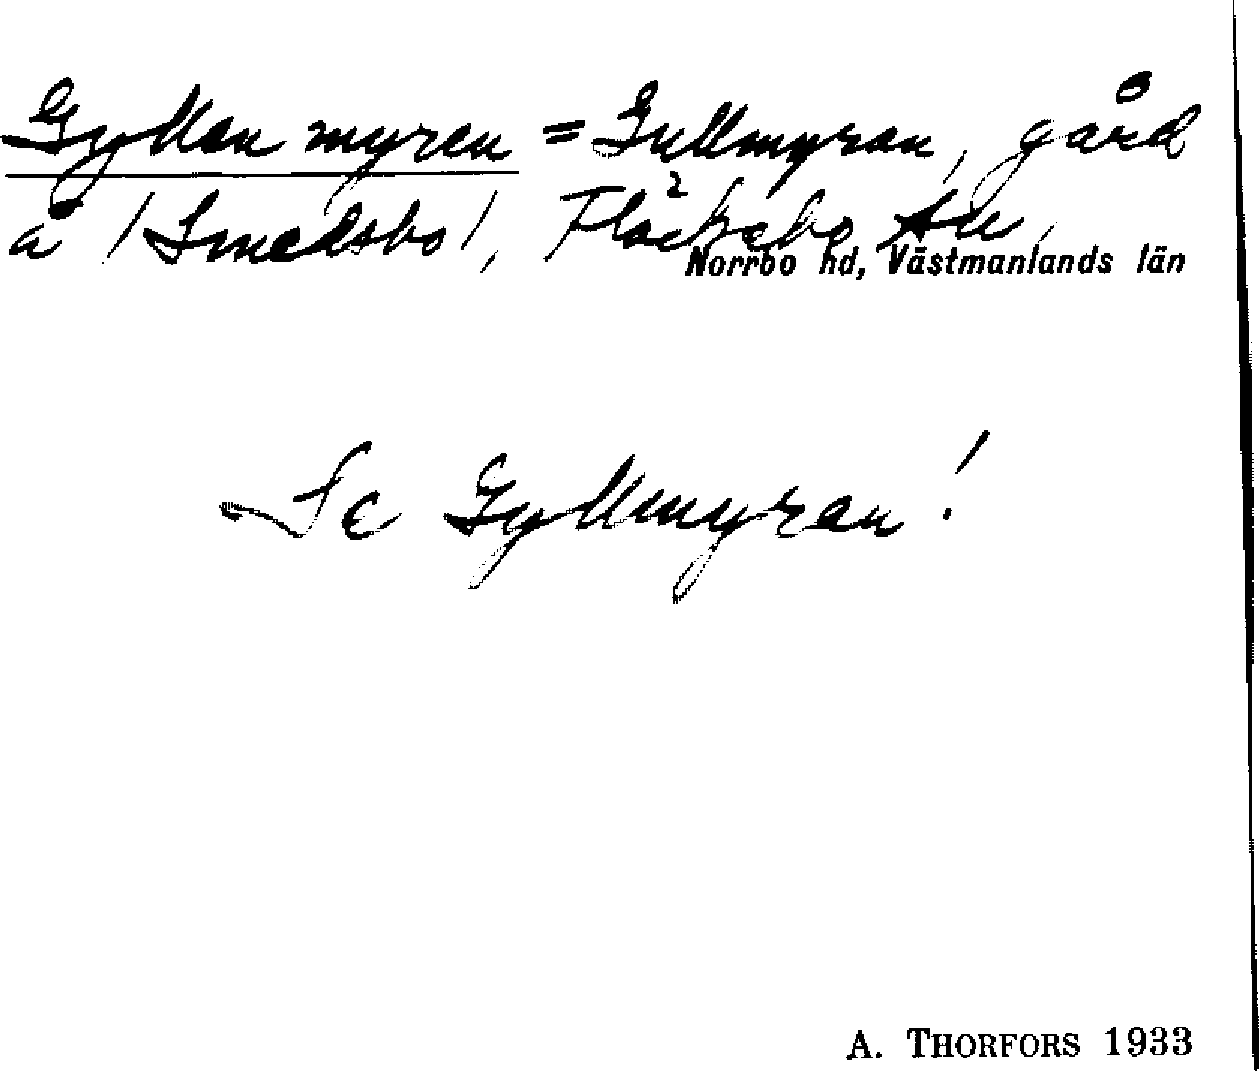 Gyllen myren = Gullmyran, gård
å /Smedsbo/, Fläckebo sn,
Norrbo hd, Västmanlands län
Se Gyllmyran!
A. THORFORS 1933